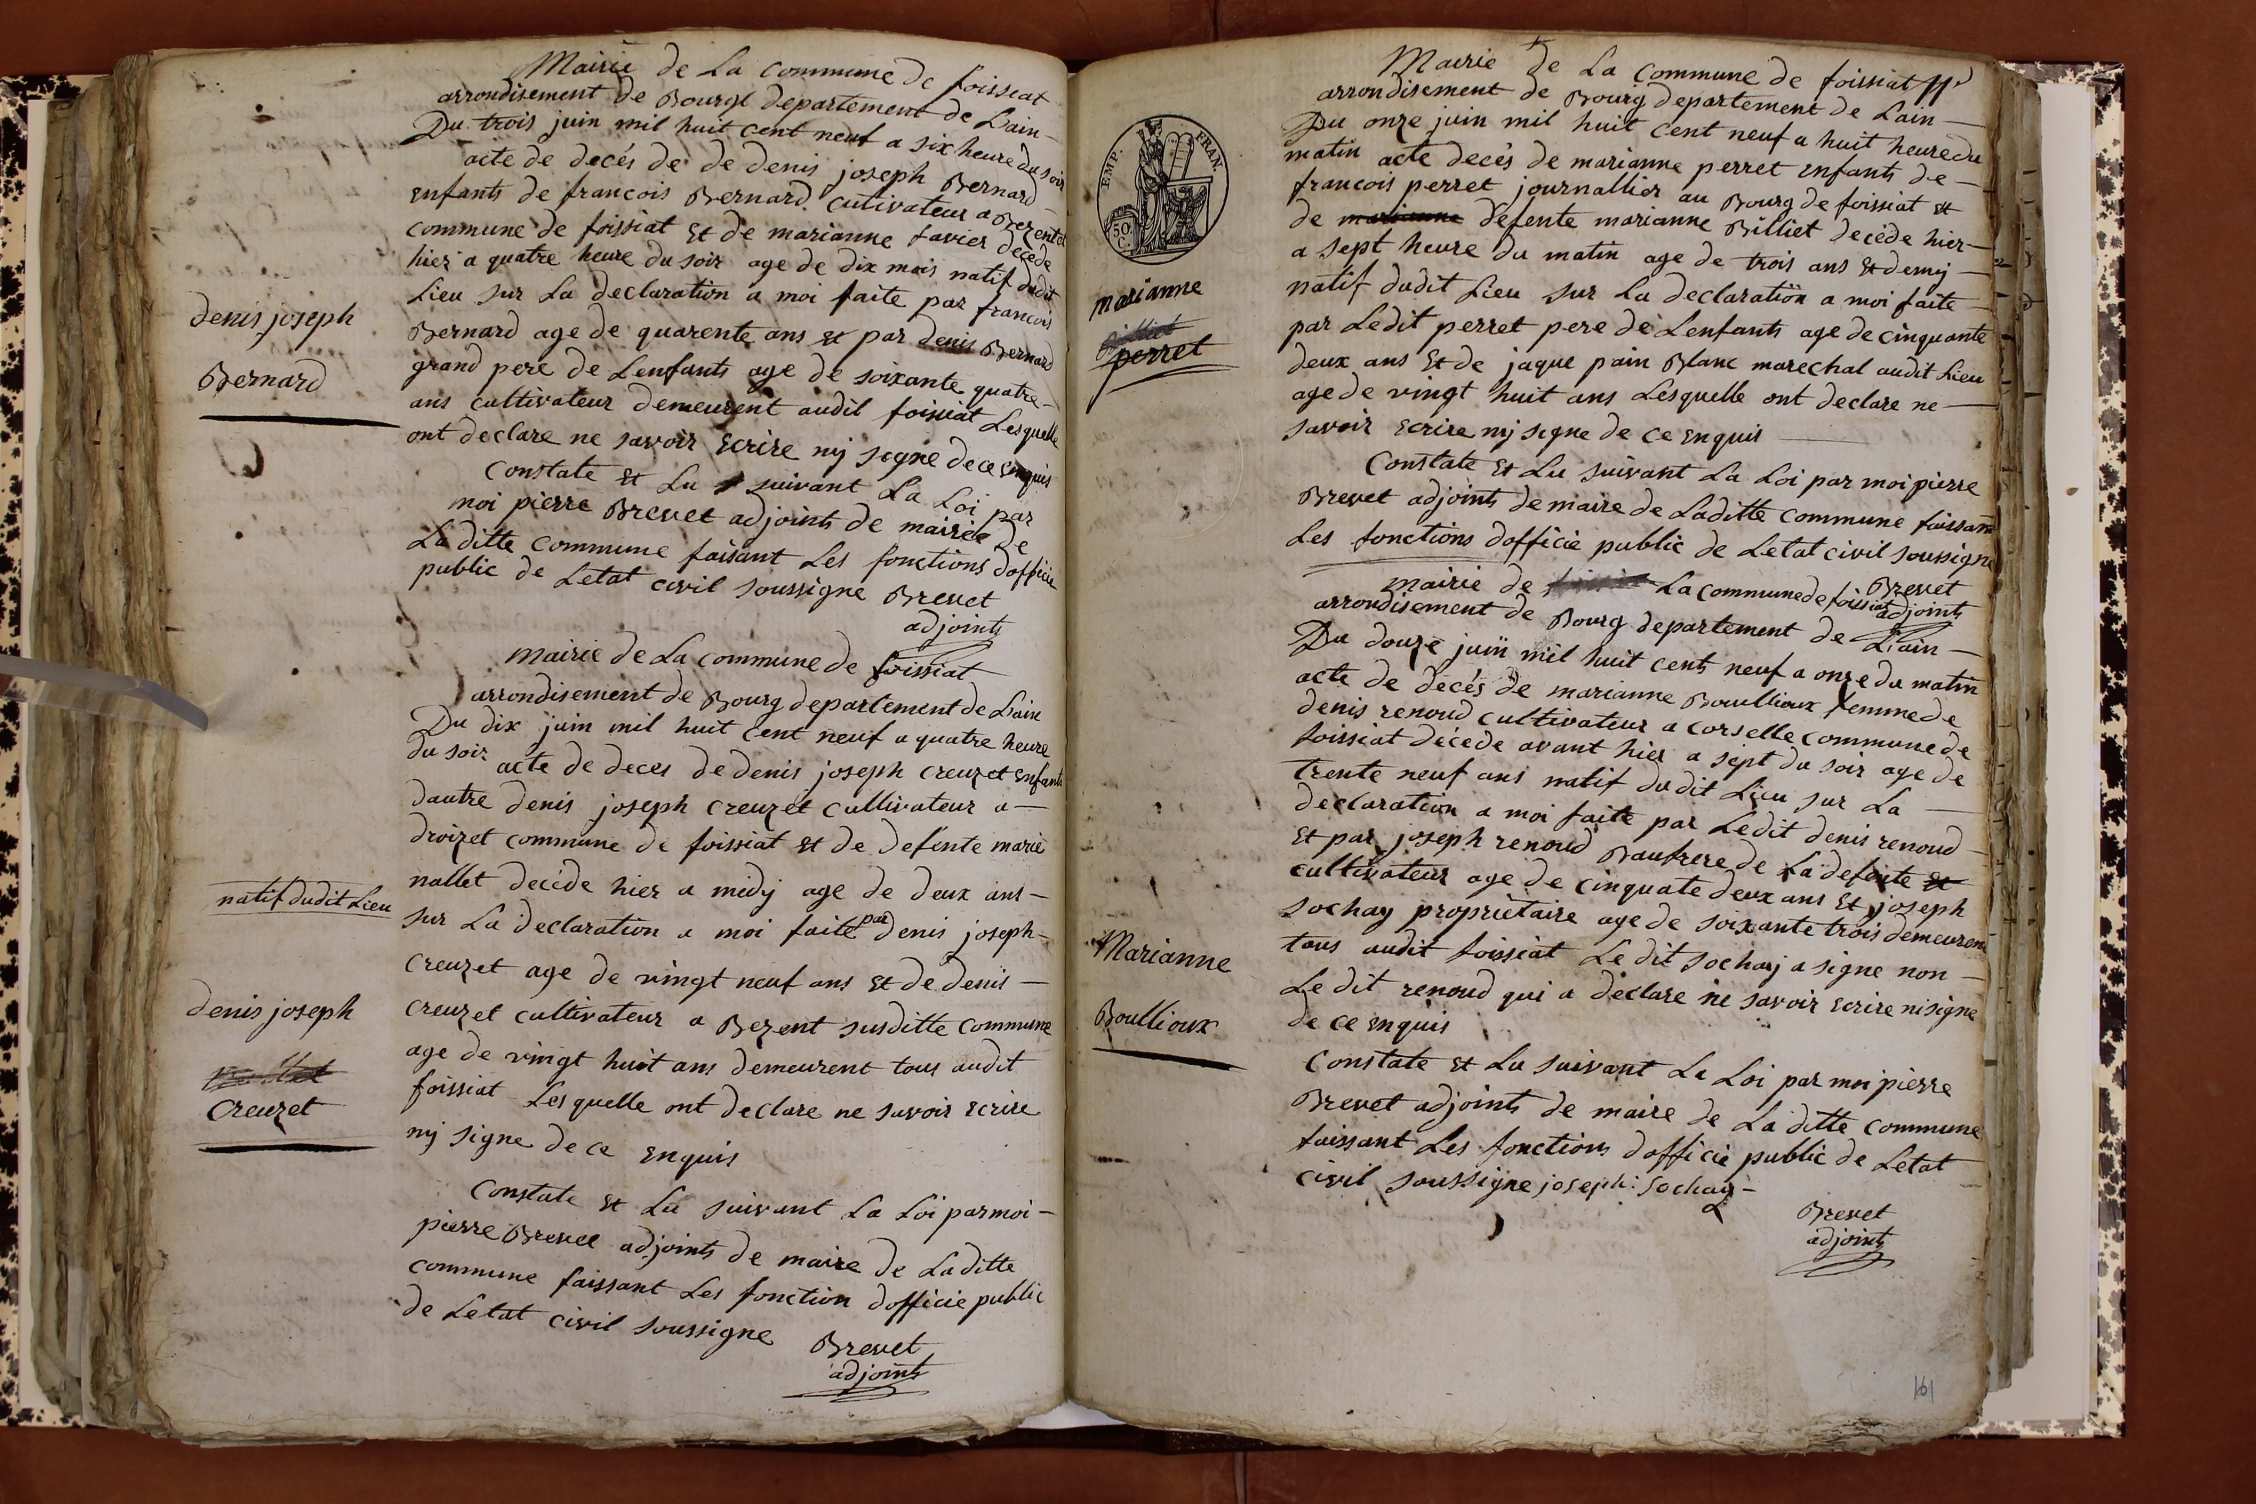 Mairie de La commune de foissiat
arrondisement de Bourg departement de Lain
Du trois juin mil huit cent neuf a six heure du soir
acte de decés de de denis joseph Bernard
enfants de francois Bernard cultivateur a Bezentet
commune de foissiat Et de marianne favier décéde
hier a quatre heure du soir age de dix mois natif dudit
Lieu sur La declaration a moi faite par francois
Bernard age de quarente ans et par denis Bernard
grand pere de Lenfants age de soixante quatre
ans cultivateur demeurent audit foissiat Lesquelle
ont declare ne savoir Ecrire nij signe de ce Enquis
denis joseph
Bernard
Constate Et Lu suivant La Loi par
moi pierre Brevet adjoints de mairie de
La ditte commune faisant Les fonctions dofficie
public de Letat civil soussigne Brevet
adjoints
Mairie de La commune de foissiat
arrondisement de Bourg departement de Lain
Du dix juin mil huit cent neuf a quatre heure
du soir acte de deces de denis joseph Creuzet Enfants
dautre denis joseph Creuzet cultivateur a
droizet commune de foissiat et de defente marie
nallet decéde hier a midij age de deux ans
natif dudit Lieu
sur La declaration a moi faite par denis joseph
Creuzet age de vingt neuf ans Et de denis
Creuzet cultivateur a Bezent susditte commune
age de vingt huit ans demeurent tous audit
foissiat Lesquelle ont declare ne savoir Ecrire
nij signe de ce Enquis
denis joseph
Creuzet
Constate Et Lu suivant La Loi par moi
pierre Brevet adjoints de maire de Laditte
commune faissant Les fonction dofficie public
de Letat civil soussigne
Brevet
adjoints
Mairie de La commune de foissiat
arrondisement de Bourg departement de Lain
Du onze juin mil huit cent neuf a huit heure du
matin acte decés de marianne perret enfants de
francois perret journallier au Bourg de foissiat et
de marianne defente marianne Billiet decéde hier
a sept heure du matin age de trois ans Et demij
natif dudit Lieu sur La declaration a moi faite
par Ledit perret pere de Lenfants age de cinquante
deux ans Et de jaque pain Blanc marechal audit Lieu
age de vingt huit ans Lesquelle ont declare ne
savoir Ecrire nij signe de ce Enquis
EMP. FRAN.
50
C.
marianne
perret
Constate Et Lu suivant La Loi par moi pierre
Brevet adjoints de maire de Laditte commune faissant
Les fonctions dofficie public de Letat civil soussigne
Brevet
adjoints
Mairie de La commune de foissiat
arrondisement de Bourg departement de Lain
Du douze juin mil huit cents neuf a onze du matin
acte de décés de marianne Bouillioux femme de
denis renoud cultivateur a Corselle commune de
foissiat décéde avant hier a sept du soir age de
trente neuf ans natif du dit Lieu sur La
declaration a moi faite par Ledit denis renoud
Et par joseph renoud Baufrere de La defente et
cultivateur age de cinquate deux ans Et joseph
Sochay propriétaire age de soixante trois demeurent
tous audit foissiat Le dit Sochaij a signe non
Le dit renoud qui a declare ne savoir Ecrire ni signe
de ce Enquis
Marianne
Boullioux
Constate Et Lu suivant La Loi par moi pierre
Brevet adjoints de maire de La ditte commune
faissant Les fonctions dofficie public de Letat
civil soussigne joseph: Sochay
Brevet
adjoints
161